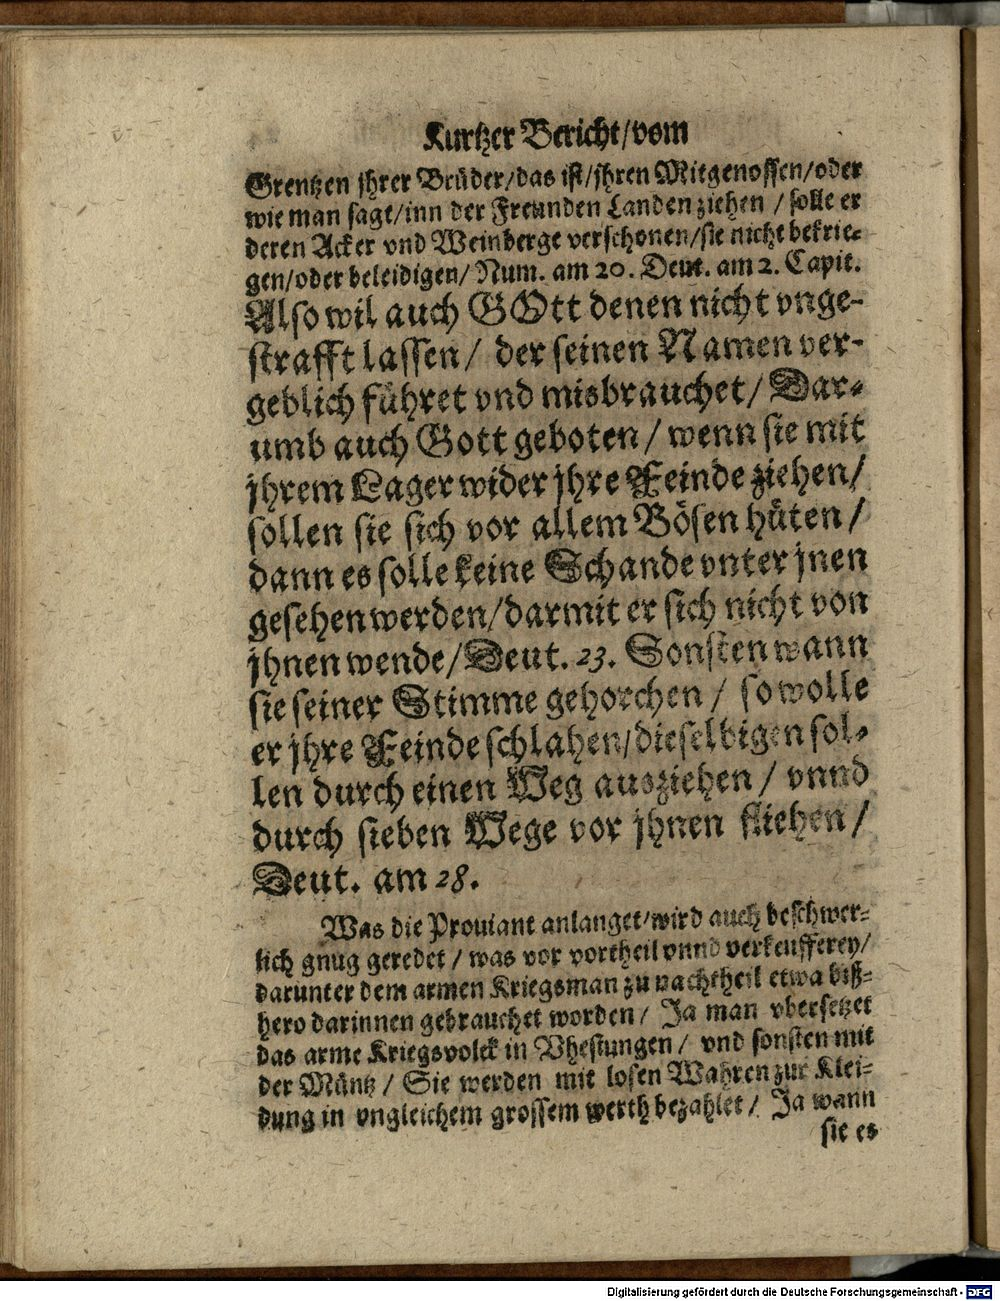 Kurtzer Bericht/vom
Grentzen jhrer Brüder/das ist/jhren Mitgenossen/oder
wie man sagt/inn der Freunden Landen ziehen / solle er
deren Acker vnd Weinberge verschonen/sie nicht bekrie-
gen/oder beleidigen/ Num. am 20. Deut. am 2. Capit.
Also wil auch GOtt denen nicht vnge-
strafft lassen / der seinen Namen ver-
geblich führet vnd misbrauchet/ Dar-
umb auch Gott geboten / wenn sie mit
jhrem Lager wider jhre Feinde ziehen/
sollen sie sich vor allem Bösen hüten /
dann es solle keine Schande vnter jnen
gesehen werden/darmit er sich nicht von
jhnen wende/Deut. 23. Sonsten wann
sie seiner Stimme gehorchen / so wolle
er jhre Feinde schlahen/dieselbigen sol-
len durch einen Weg ausziehen / vnnd
durch sieben Wege vor jhnen fliehen /
Deut. am 28.
Was die Prouiant anlanget/wird auch beschwer-
lich gnug geredet / was vor vortheil vnnd verkeufferey/
darunter dem armen Kriegsman zu nachtheil etwa biß-
hero darinnen gebrauchet worden / Ja man vbersetzet
das arme Kriegsvolck in Vhestungen / vnd sonsten mit
der Müntz / Sie werden mit losen Wahren zur Klei-
dung in vngleichem grossem werth bezahlet / Ja wann
sie es
Digitalisierung gefördert durch die Deutsche Forschungsgemeinschaft - DFG